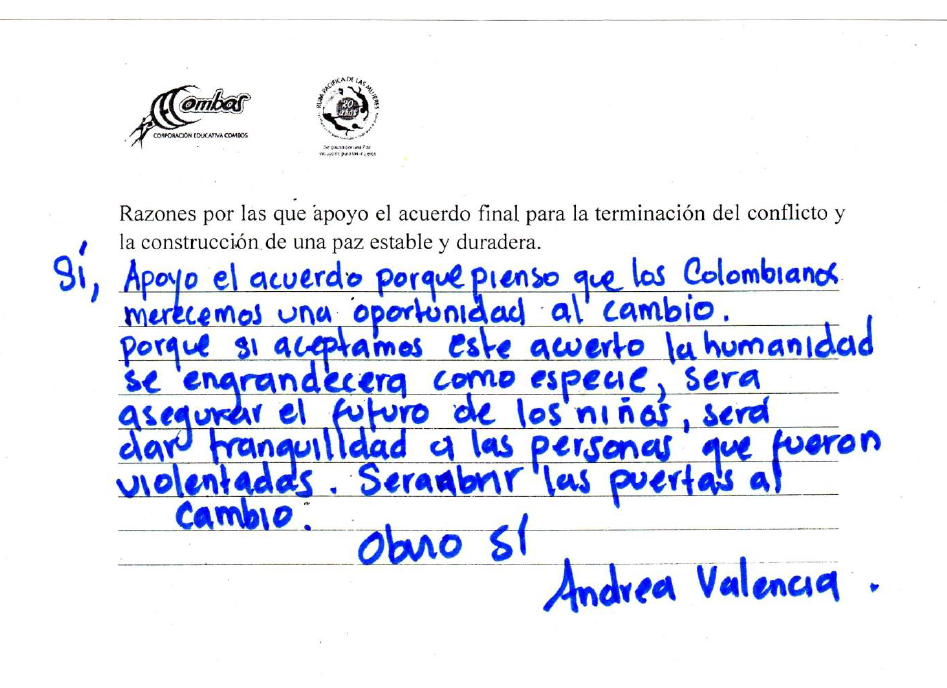 Combos
CORPORACIÓN EDUCATIVA COMBOS
RUTA PACÍFICA DE LAS MUJERES
20 años
Razones por las que apoyo el acuerdo final para la terminación del conflicto y
la construcción de una paz estable y duradera.
Sí, Apoyo el acuerdo porque pienso que los Colombianos
merecemos una oportunidad al cambio.
porque si aceptamos este acuerto la humanidad
se engrandecera como especie, sera
asegurar el futuro de los niños, será
dar tranquilidad a las personas que fueron
violentadas. Sera abrir las puertas al
cambio.
Obvio SÍ
Andrea Valencia.